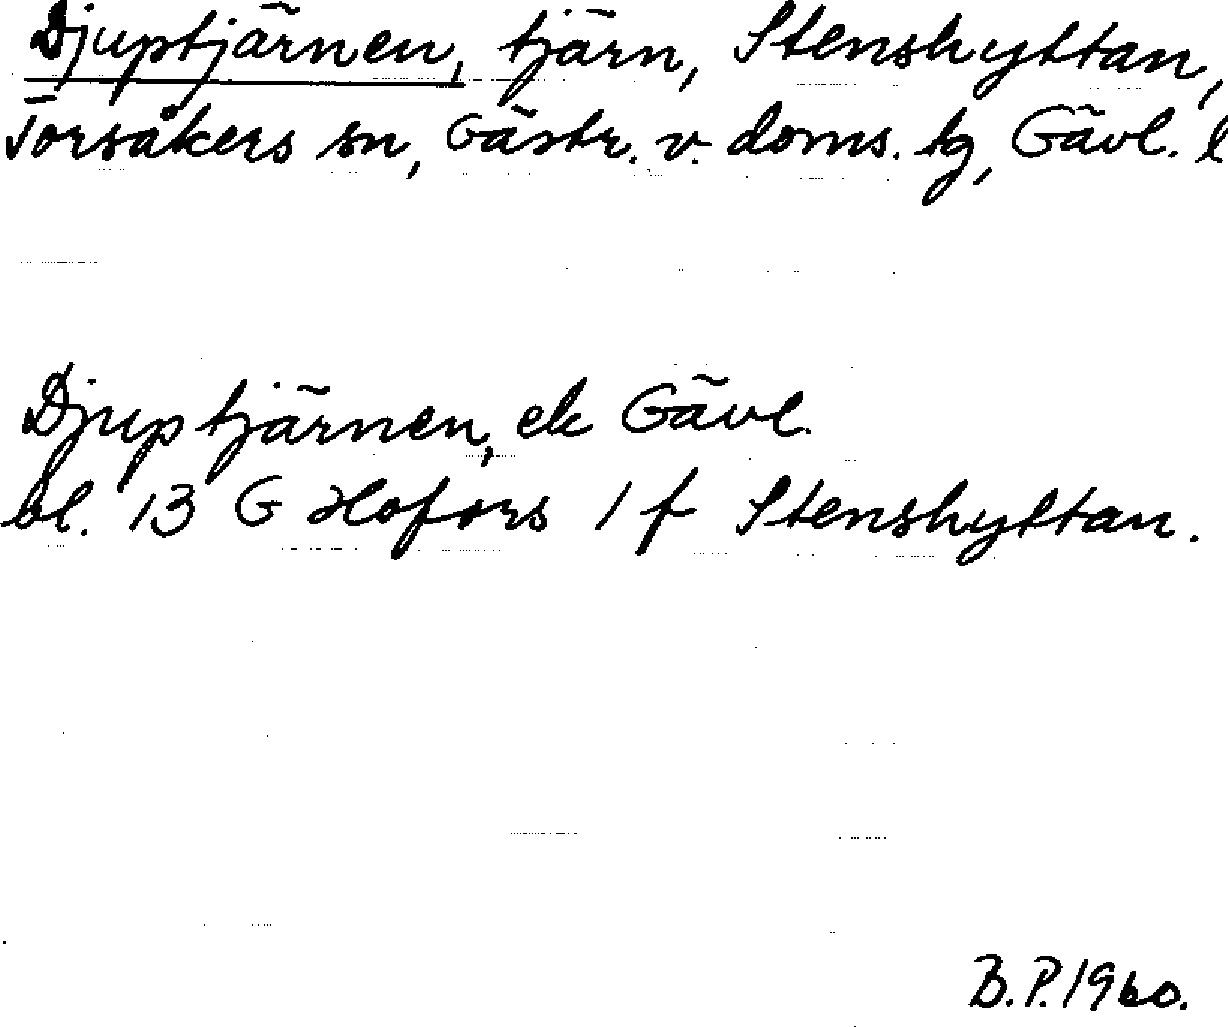 Djuptjärnen, tjärn, Stenshyttan,
Torsåkers sn, Gästr. v. doms. tg, Gävl. l
Djuptjärnen, ek Gävl.
bl. 13 G Hofors 1 f Stenshyttan.
B.P. 1960.